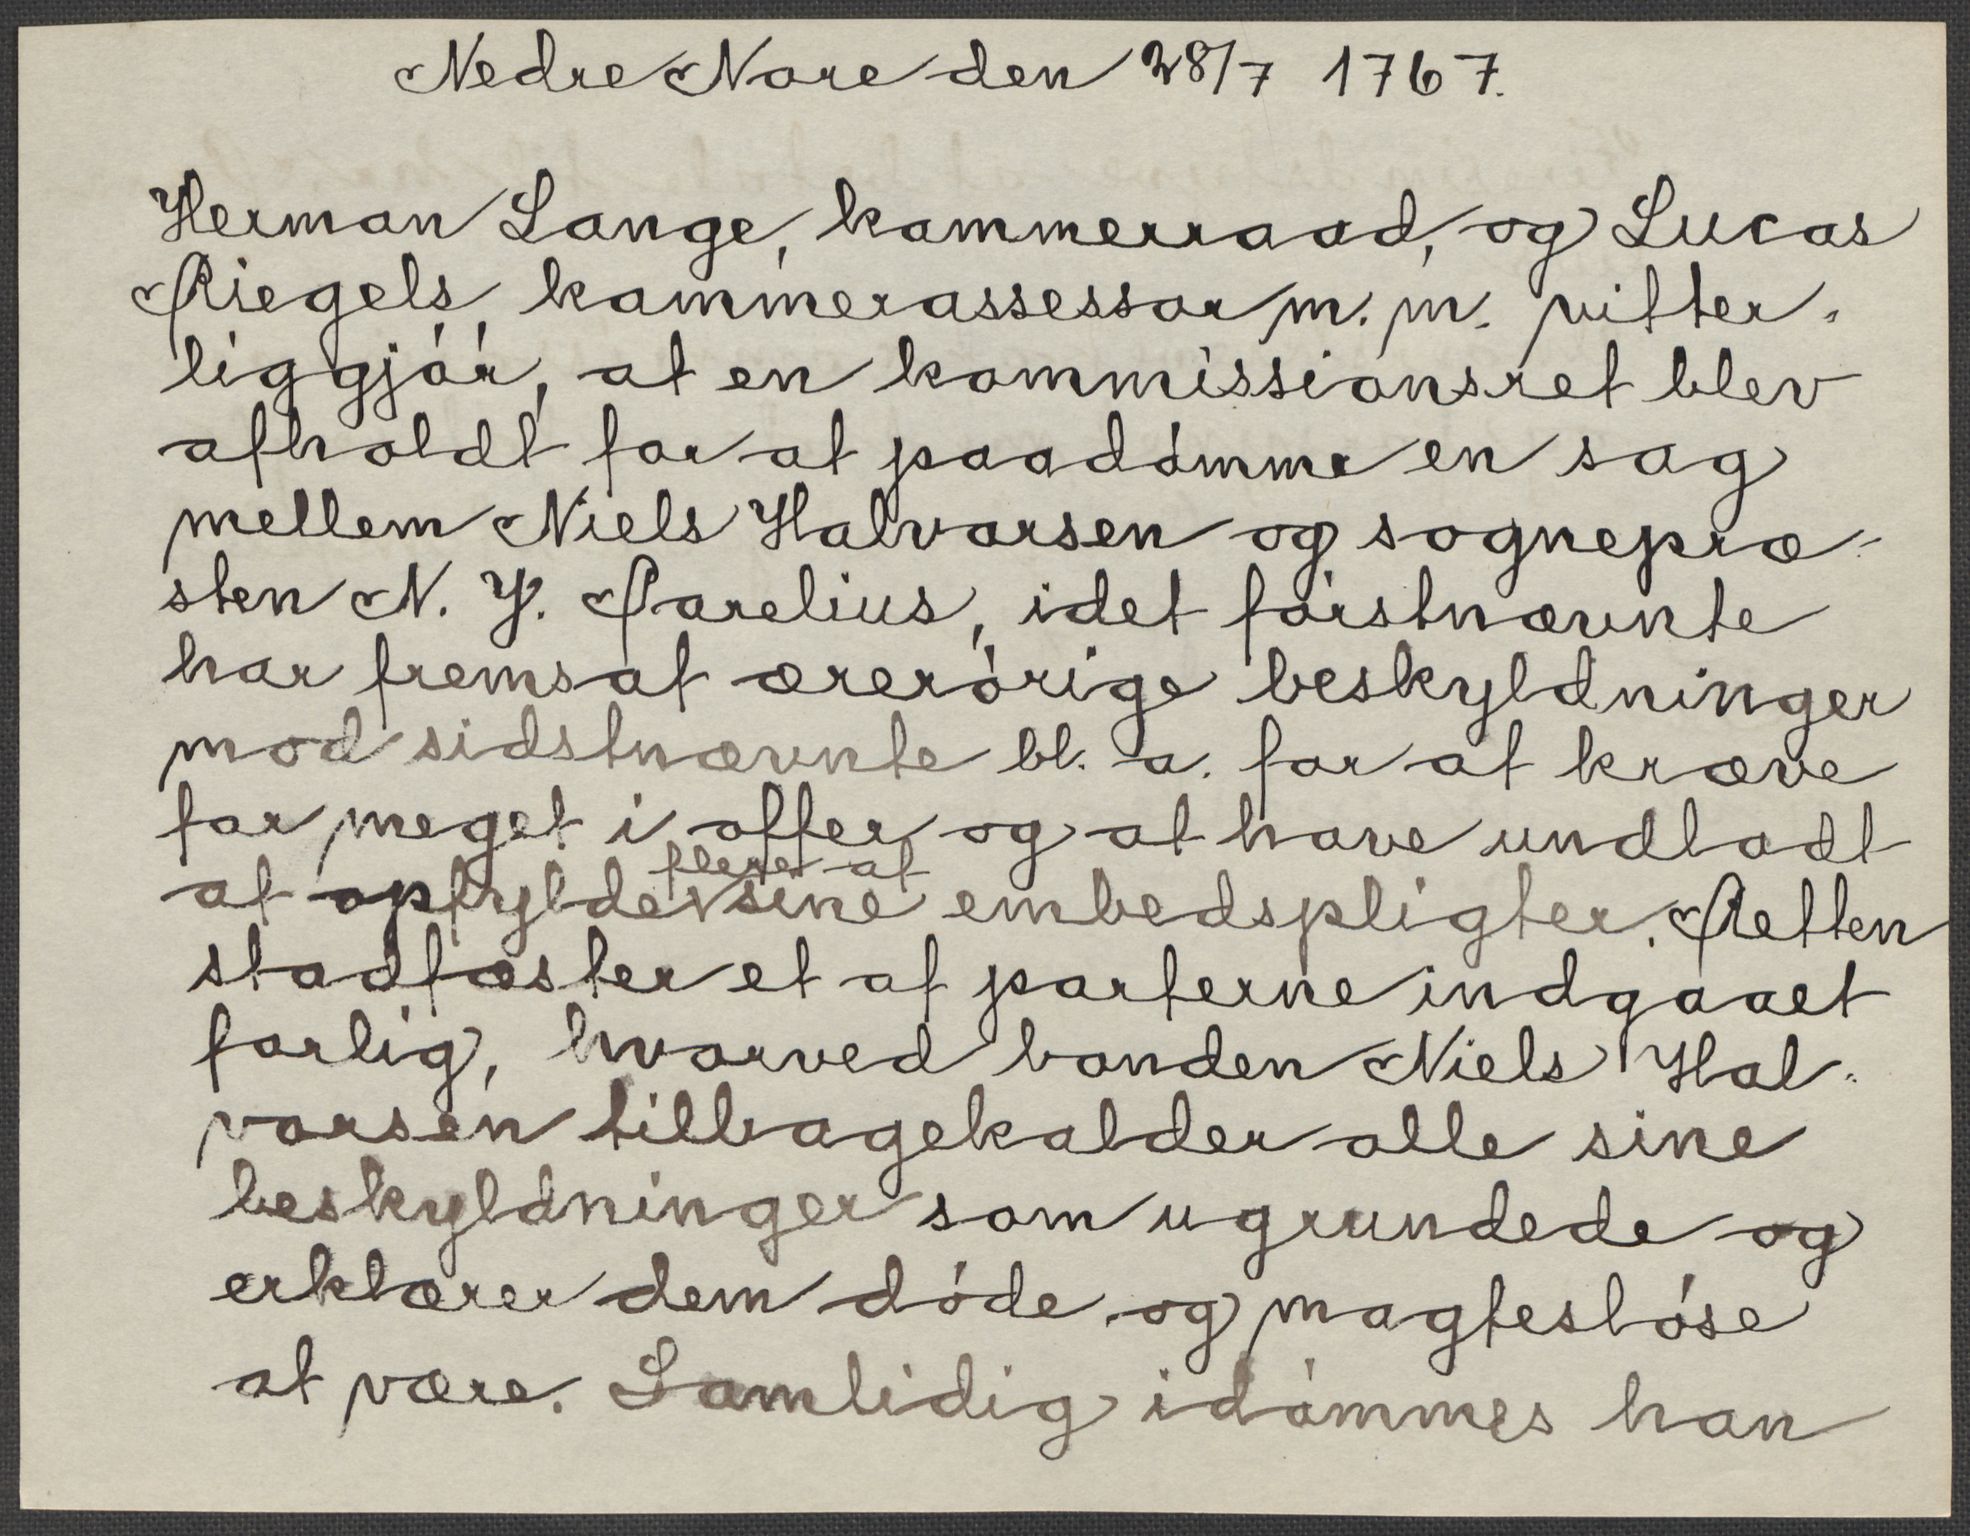 Nedre Nore den 28/7 1767.
Herman Lange, kammerraad, og Lucas
Riegels, kammerassessor m. m. vitter-
liggjór, at en kommissionsret blev
afholdt for at paadómme en sag
mellem Niels Halvorsen og sognepræ-
sten N. J. Parelius, idet fórstnævnte
har fremsat ærerórige beskyldninger
mod sidstnævnte bl. a. for at kræve
for meget i offer og at have undladt
flere af
at opfylde sine embedspligter. Retten
stadfæster et af parterne indgaaet
forlig, hvorved bonden Niels Hal-
vorsen tilbagekalder alle sine
beskyldninger som ugrundede og
erklærer dem dóde og magteslóse
at være. Samtidig idómmes han